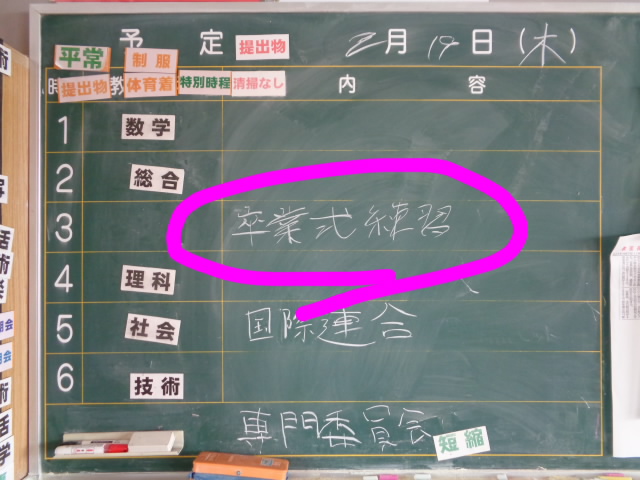 予 定 提出物 2月19日(木)
平常 制服
時 教 内 容
提出物 体育着 特別時程 清掃なし
1 数学
2 総合
3 卒業式練習
4 理科
5 社会 国際連合
6 技術
専門委員会
短縮